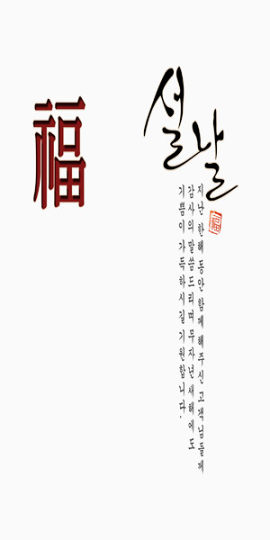 福
설날
福
지난 한해 동안 함께 해주신 고객님들께
감사의 말씀 드리며 무자년 새해에도
기쁨이 가득하시길 기원합니다.